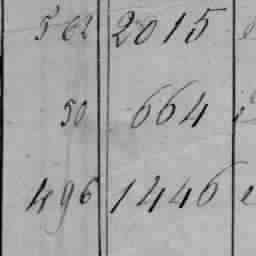 562 2015
50 664
496 1446